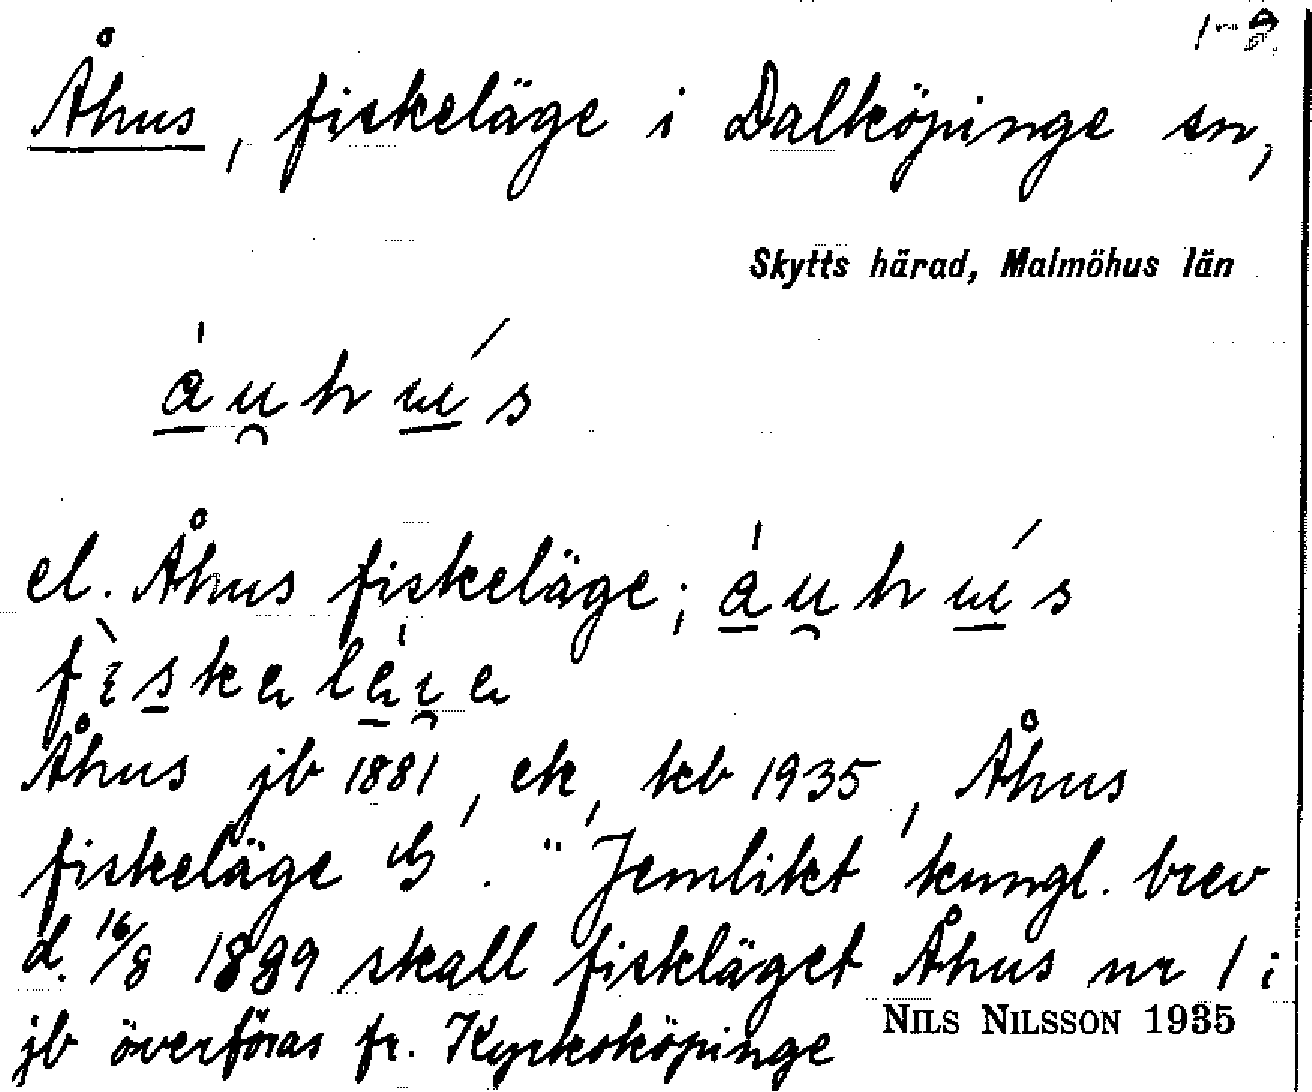 1-2
Åhus, fiskeläge i Dalköpinge sn,
Skytts härad, Malmöhus län
el. Åhus fiskeläge;
Åhus jb 1881, ek, kb 1935, Åhus
fiskeläge G. "Jemlikt kungl. brev
d. 16/8 1889 skall fiskläget Åhus nr 1 i
jb överföras fr. Kyrkoköpinge
NILS NILSSON 1935